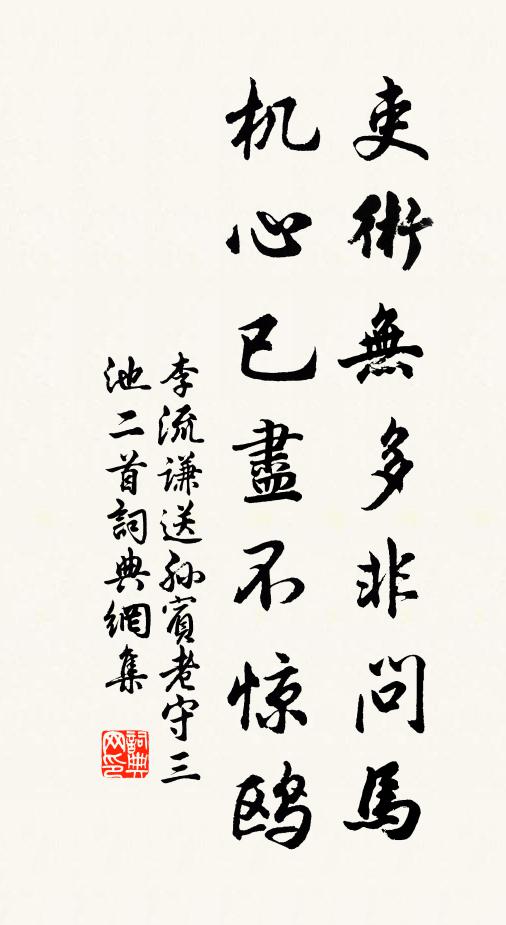 吏術無多非問馬
机心已盡不惊鸥
李流谦送孙賓老守三
池二首詞典網集
詞典网印